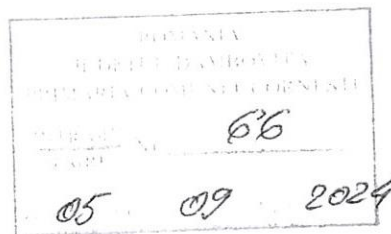 ROMANIA
JUDETUL DAMBOVITA
PRIMARIA COMUNEI CORNESTI
INTRARE
IESIRE Nr. 66
05 09 2024